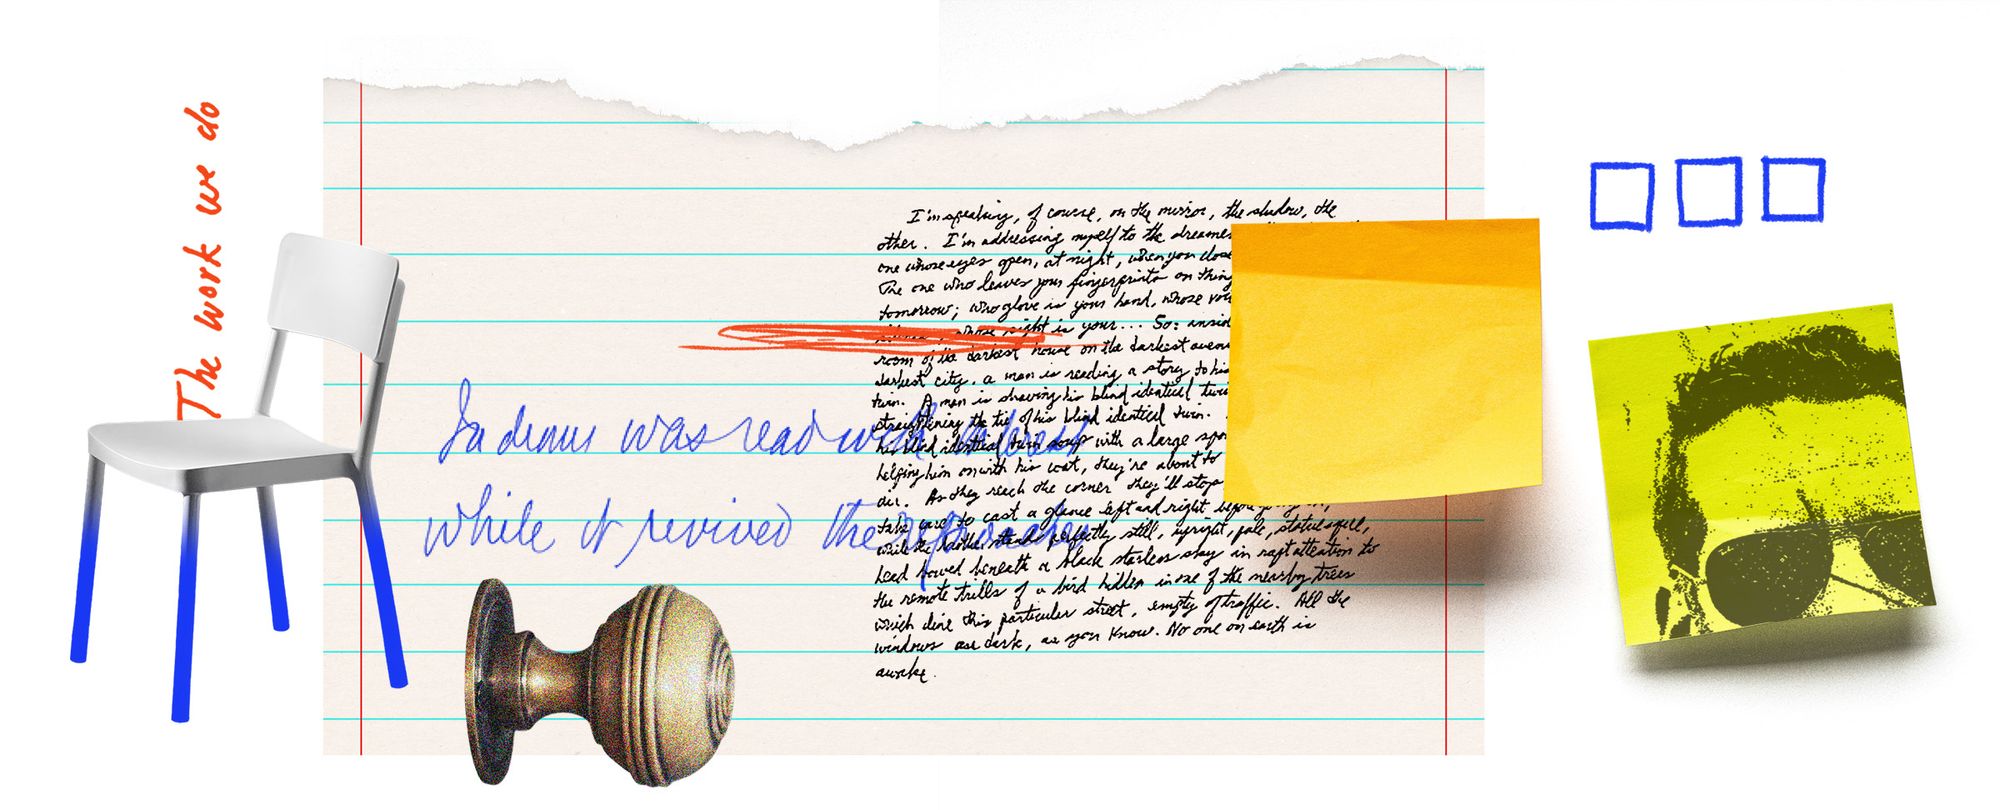 The work we do
I'm speaking, of course, on the mirror, the shadow, the
other. I'm addressing myself to the dreamer
one whose eyes open, at night, when you close
The one who leaves your fingerprints on thing
tomorrow; who glove is your hand, whose
whose night is your... So: inside
room of the darkest house on the darkest avenue
darkest city. a man is reading a story to his
twin. A man is shaving his blind identical twin
straightening the tie of his blind identical twin.
his blind identical twin soup with a large spoo
helping him on with his coat, they're about to
air. As they reach the corner they'll stop
take care to cast a glance left and right before
while the other stands perfectly still, upright, pale, statuesque,
head bowed beneath a black starless sky in rapt attention to
the remote trills of a bird hidden in one of the nearby trees
which line this particular street, empty of traffic. All the
windows are dark, as you know. No one on earth is
awake.
was read
while it revived the